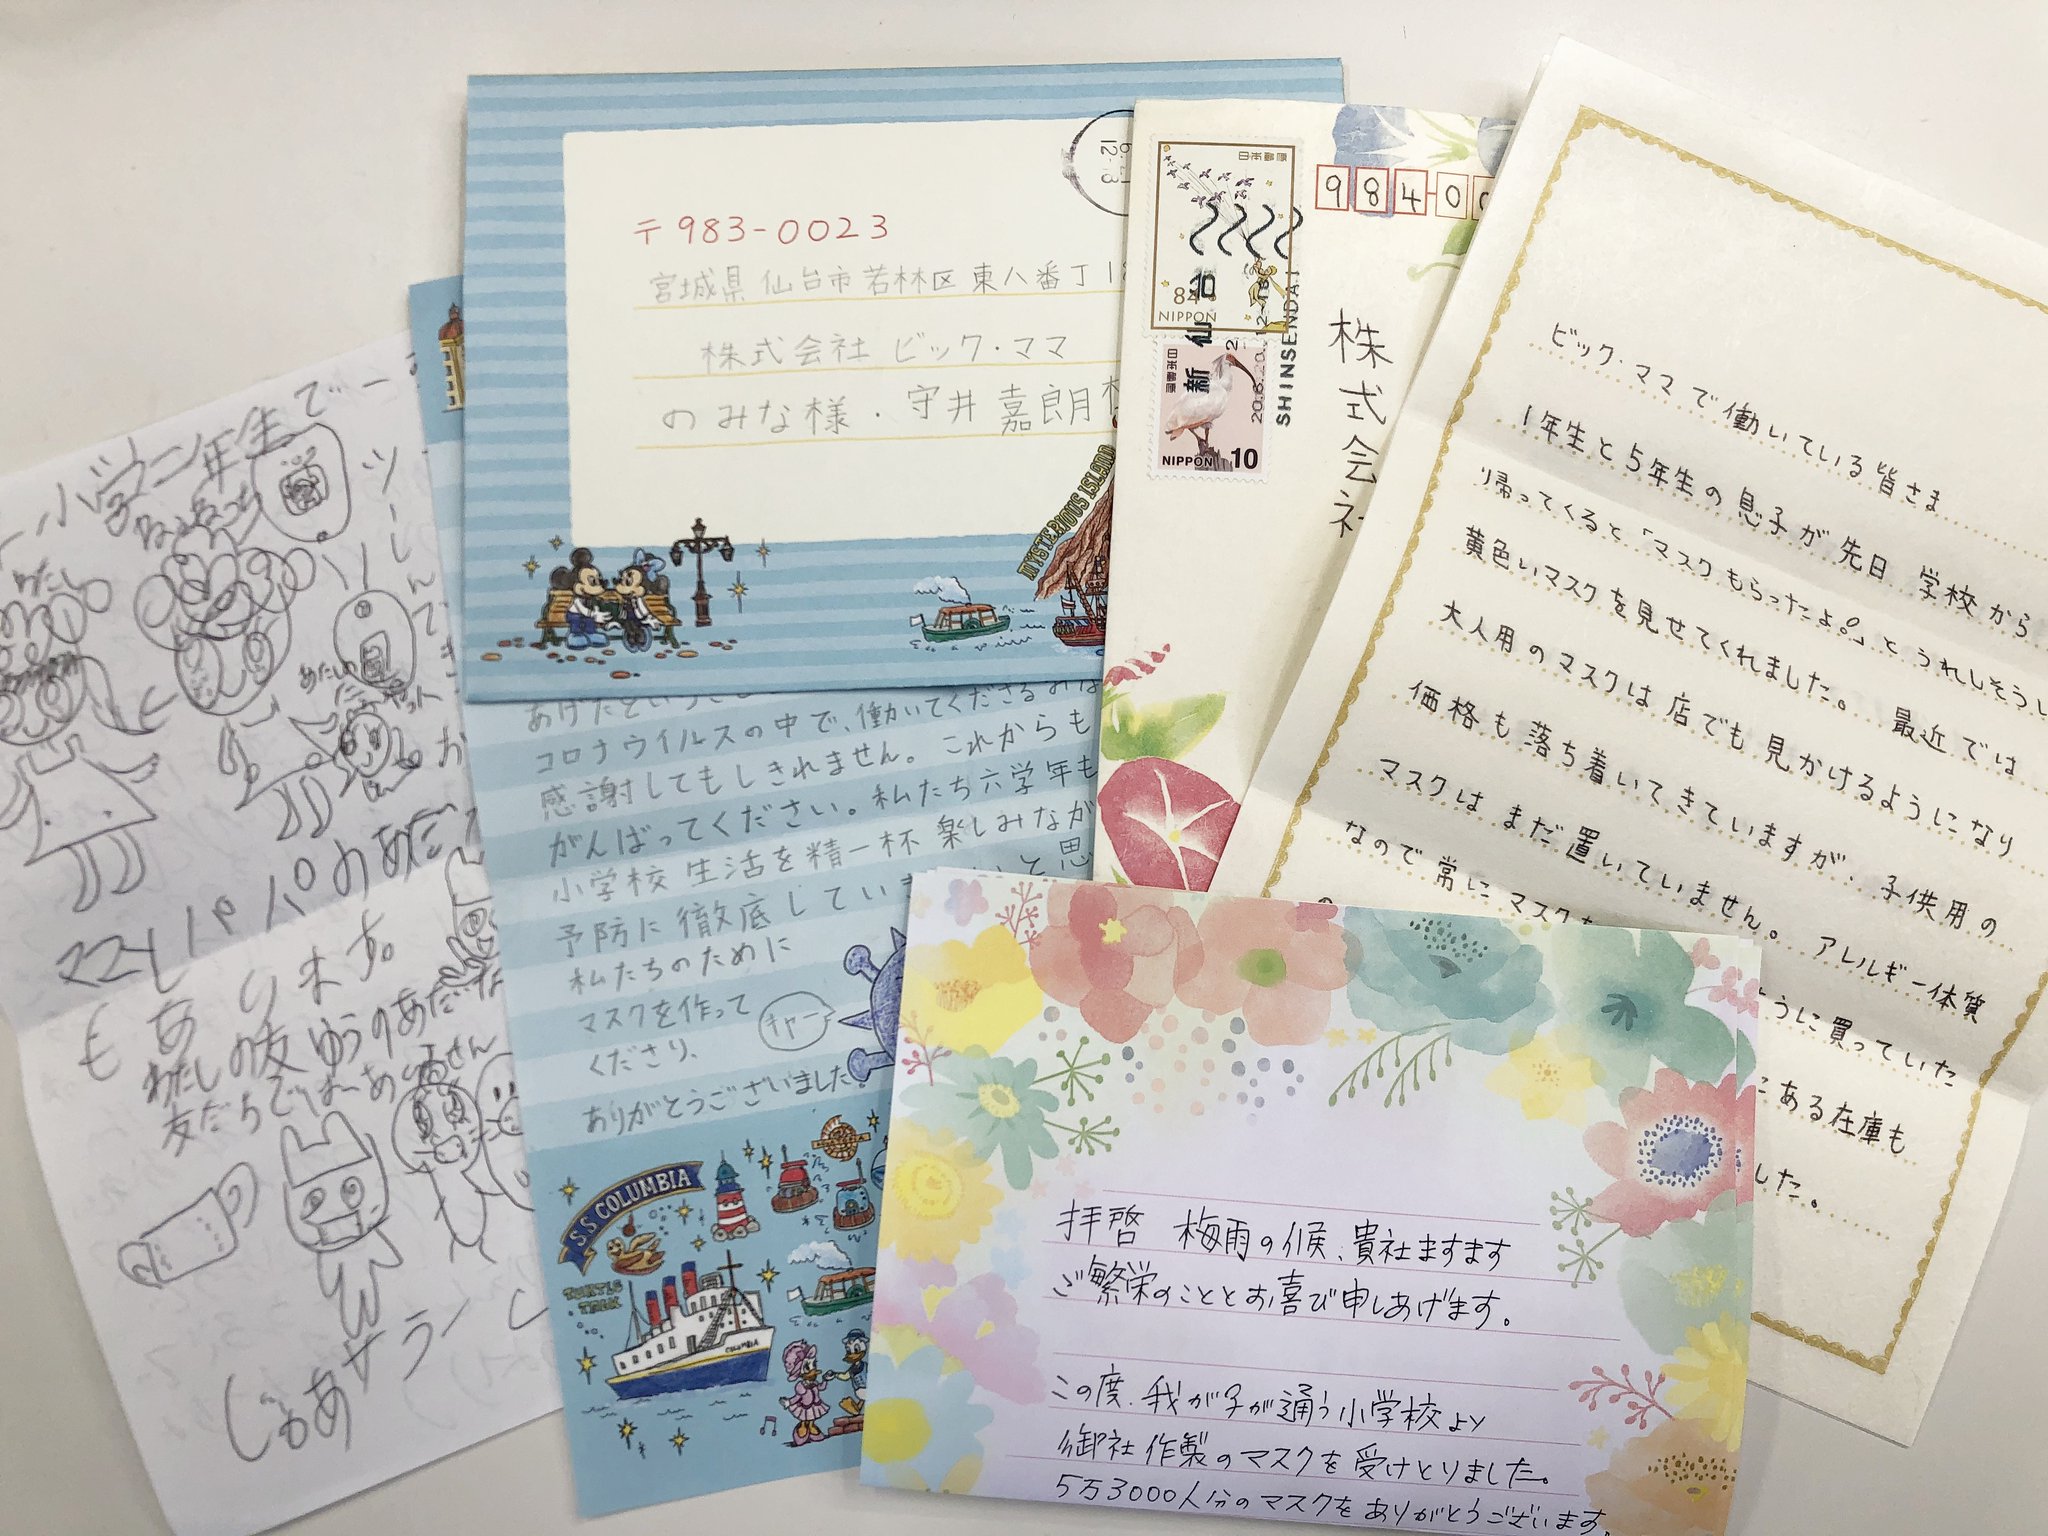 〒983-0023
宮城県仙台市若林区東八番丁
株式会社 ビック・ママ
のみな様・守井嘉朗
MYSTERIOUS ISLAND
あげたという
コロナウイルスの中で、働いてくださるみな
感謝してもしきれません。これからも
がんばってください。私たち六学年も
小学校生活を精一杯楽しみなが
予防に徹底してい
と思
私たちのために
マスクを作って
くださり、
ありがとうございました。
チャー
S.S.COLUMBIA
TURTLE TALK
COLUMBIA
日本郵便
84
NIPPON
日本郵便
NIPPON 10
新仙台
SHINSENDAI
984-00
株式会社
ビック・ママで働いている皆さま
1年生と5年生の息子が先日 学校から
帰ってくると「マスクもらったよ。」とうれしそうに
黄色いマスクを見せてくれました。 最近では
大人用のマスクは店でも見かけるようになり
価格も落ち着いてきていますが、子供用の
マスクはまだ置いていません。 アレルギー体質
なので常にマスクを
ように買っていた
にある在庫も
した。
拝啓 梅雨の候、貴社ますます
ご繁栄のこととお喜び申しあげます。
この度、我が子が通う小学校より
御社作製のマスクを受けとりました。
5万3000人分のマスクをありがとうございます。
小学二年生でーす
わたし
ママとパパのあだな
もあります。
わたしの友
ゆうのあだな
友だちで
じゃあサラ